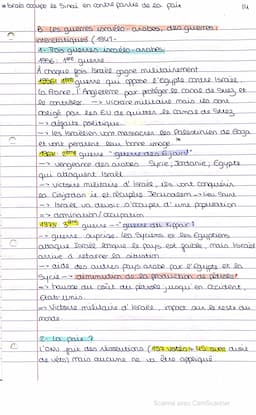 * Israël occupe le Sinaï en contre partie de la paix
14
B. Les guerres israélo-arabes, des guerres
interétatiques (1947-
1- Trois guerres israélo-arabes.
1956: 1ère guerre
À chaque fois Israël gagne militairement
1956: 1ère guerre qui oppose l'Egypte contre Israël,
la France, l'Angleterre pour protéger le canal de Suez et
le contrôler. → Victoire militaire mais ils sont
obligé par les EU de quitter le canal de Suez
→ défaite politique
→ les Israélien vont massacrer les Palestinien de Gaza
et vont perdent leur bonne image
1967: 2ème guerre "guerre des 6 jours"
→ vengeance des arabes Syrie, Jordanie, Egypte
qui attaquent Israël
→ victoire militaire d'Israël, ils vont conquérir
la Cisjordanie et récupère Jérusalem →
→ Israël va devoir occuper d'une population
→ domination/occupation
1973: 3ème guerre → "guerre du Kippour"
→ guerre surprise les Syriens et les Egyptiens
attaque Israël lorsque le pays est faible, mais Israël
arrive à retourner la situation
→ aide des autres pays arabe par l'Egypte et la
Syrie → diminution de la production de pétrole
→ hausse du coût du pétrole jusqu'en Occident,
Etats Unis.
→ Victoire militaire d'Israël, impact sur le reste du
monde
2- La paix?
L'ONU fait des résolutions (157 votés → 45 avec droit
de véto) mais aucune ne va être appliqué
Scanné avec CamScanner